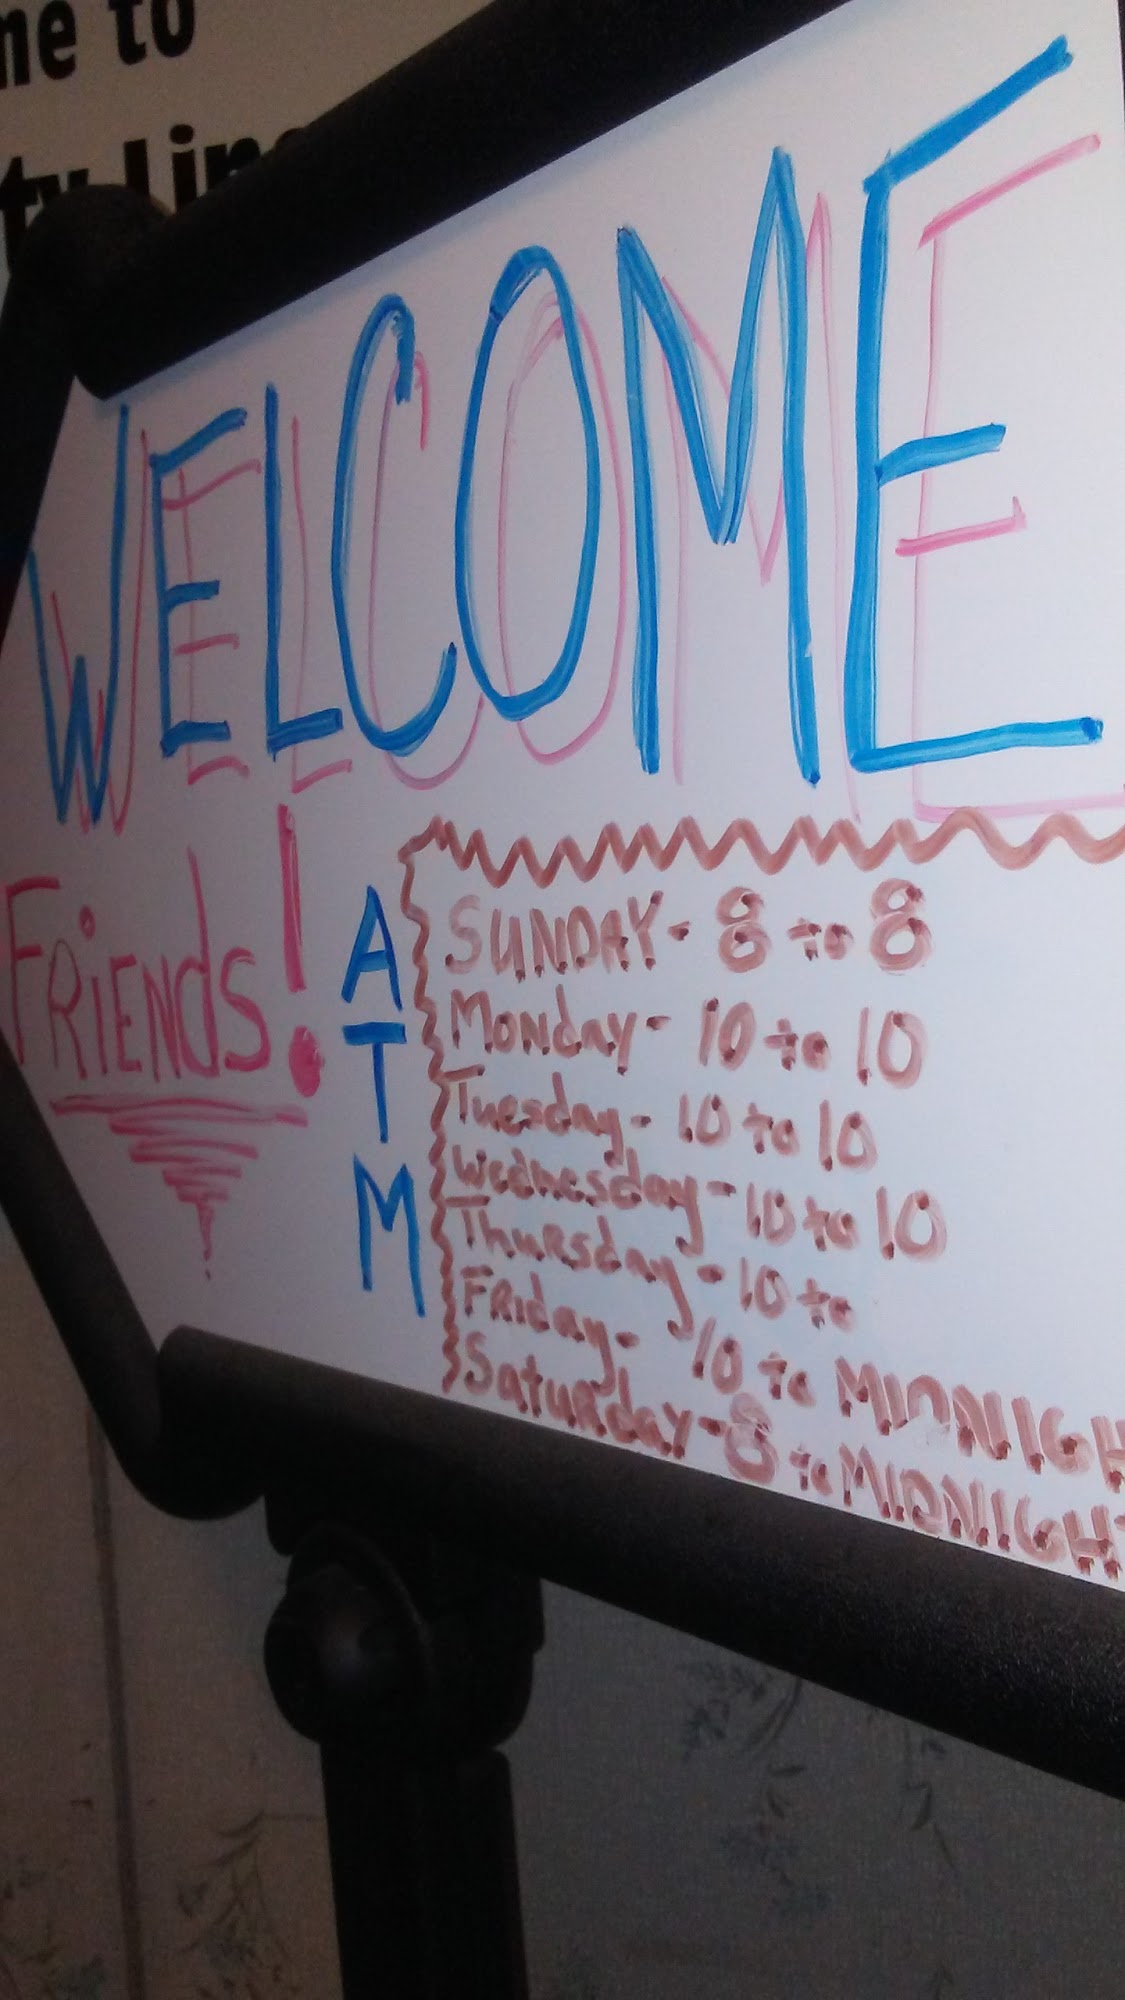 me to
ty Line
WELCOME
FRiENds!
ATM
SUNDAY - 8 to 8
Monday - 10 to 10
Tuesday - 10 to 10
Wednesday - 10 to 10
Thursday - 10 to
Friday - 10 to MIDNIGH
Saturday - 8 to MIDNIGHT